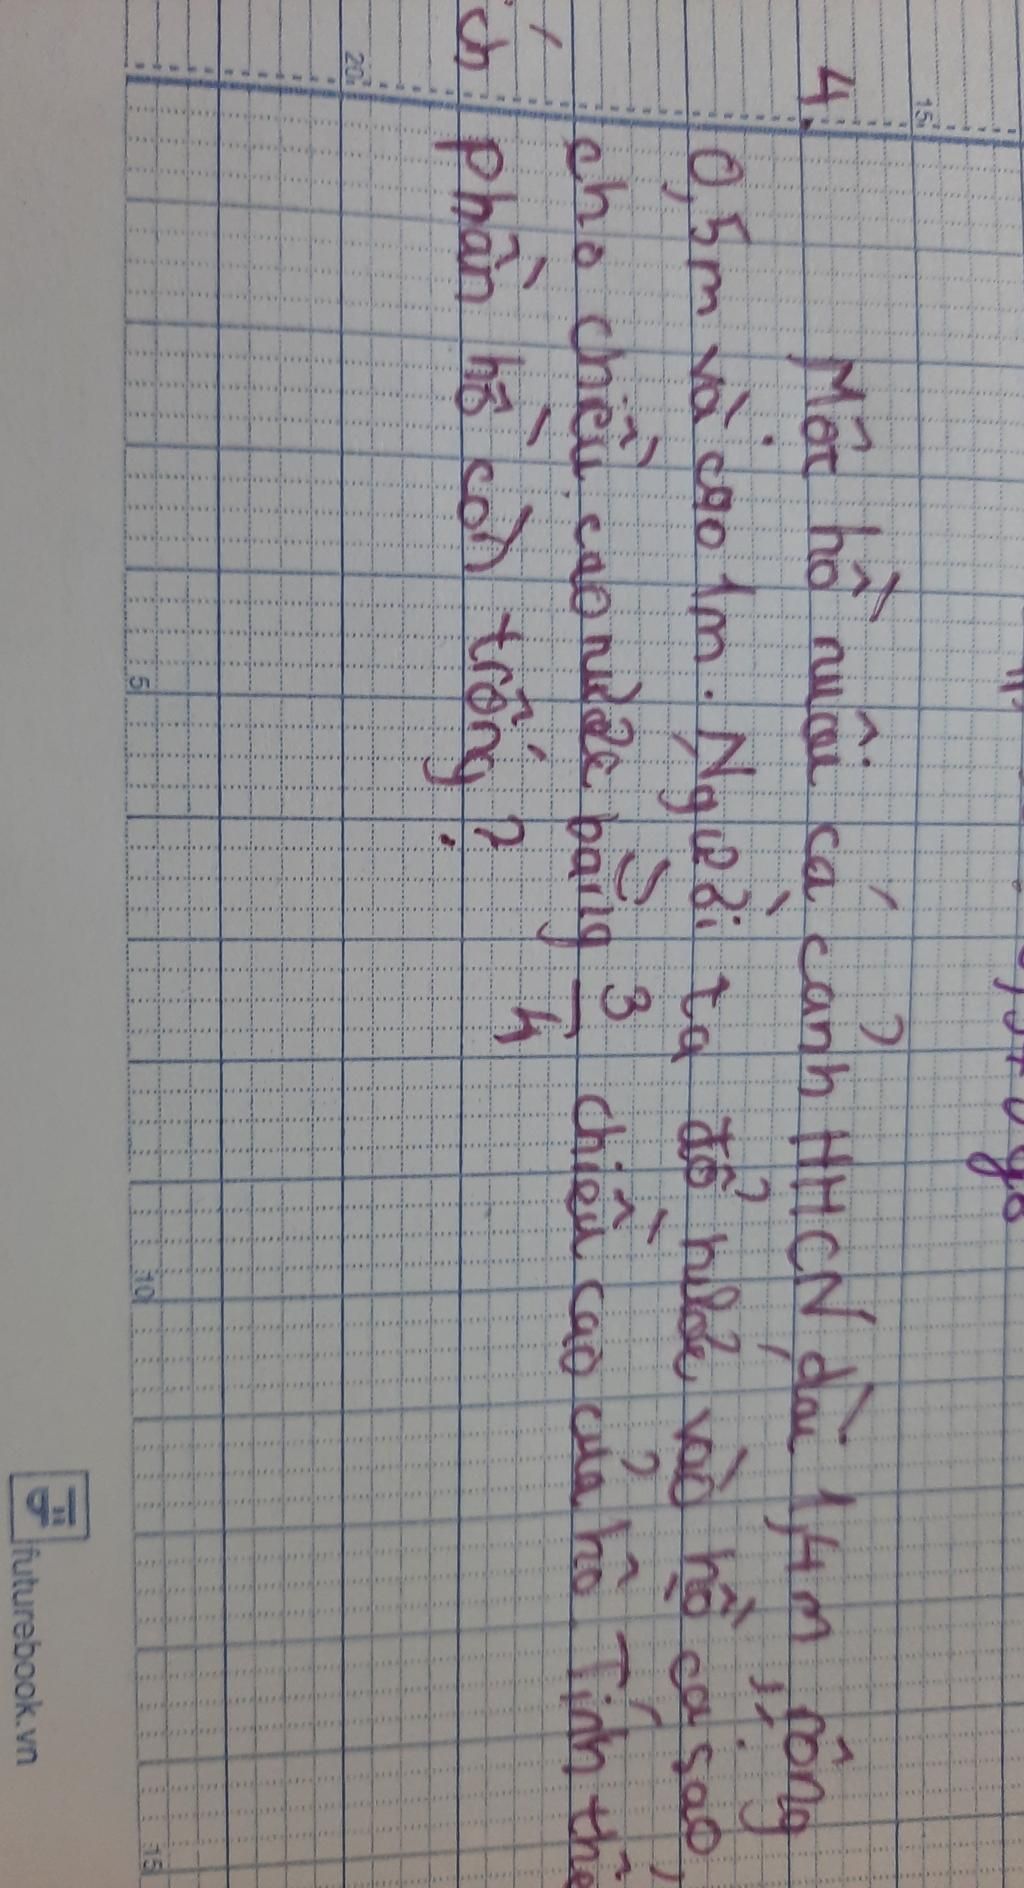 4. Một hồ nuôi cá cảnh HHCN dài 1,4m rộng
0,5m và cao 1m. Người ta đổ nước vào hồ cá sao
cho chiều cao nước bằng 3/4 chiều cao của hồ. Tính thể
tích phần hồ còn trống?
15
20
5
10
15
futurebook.vn